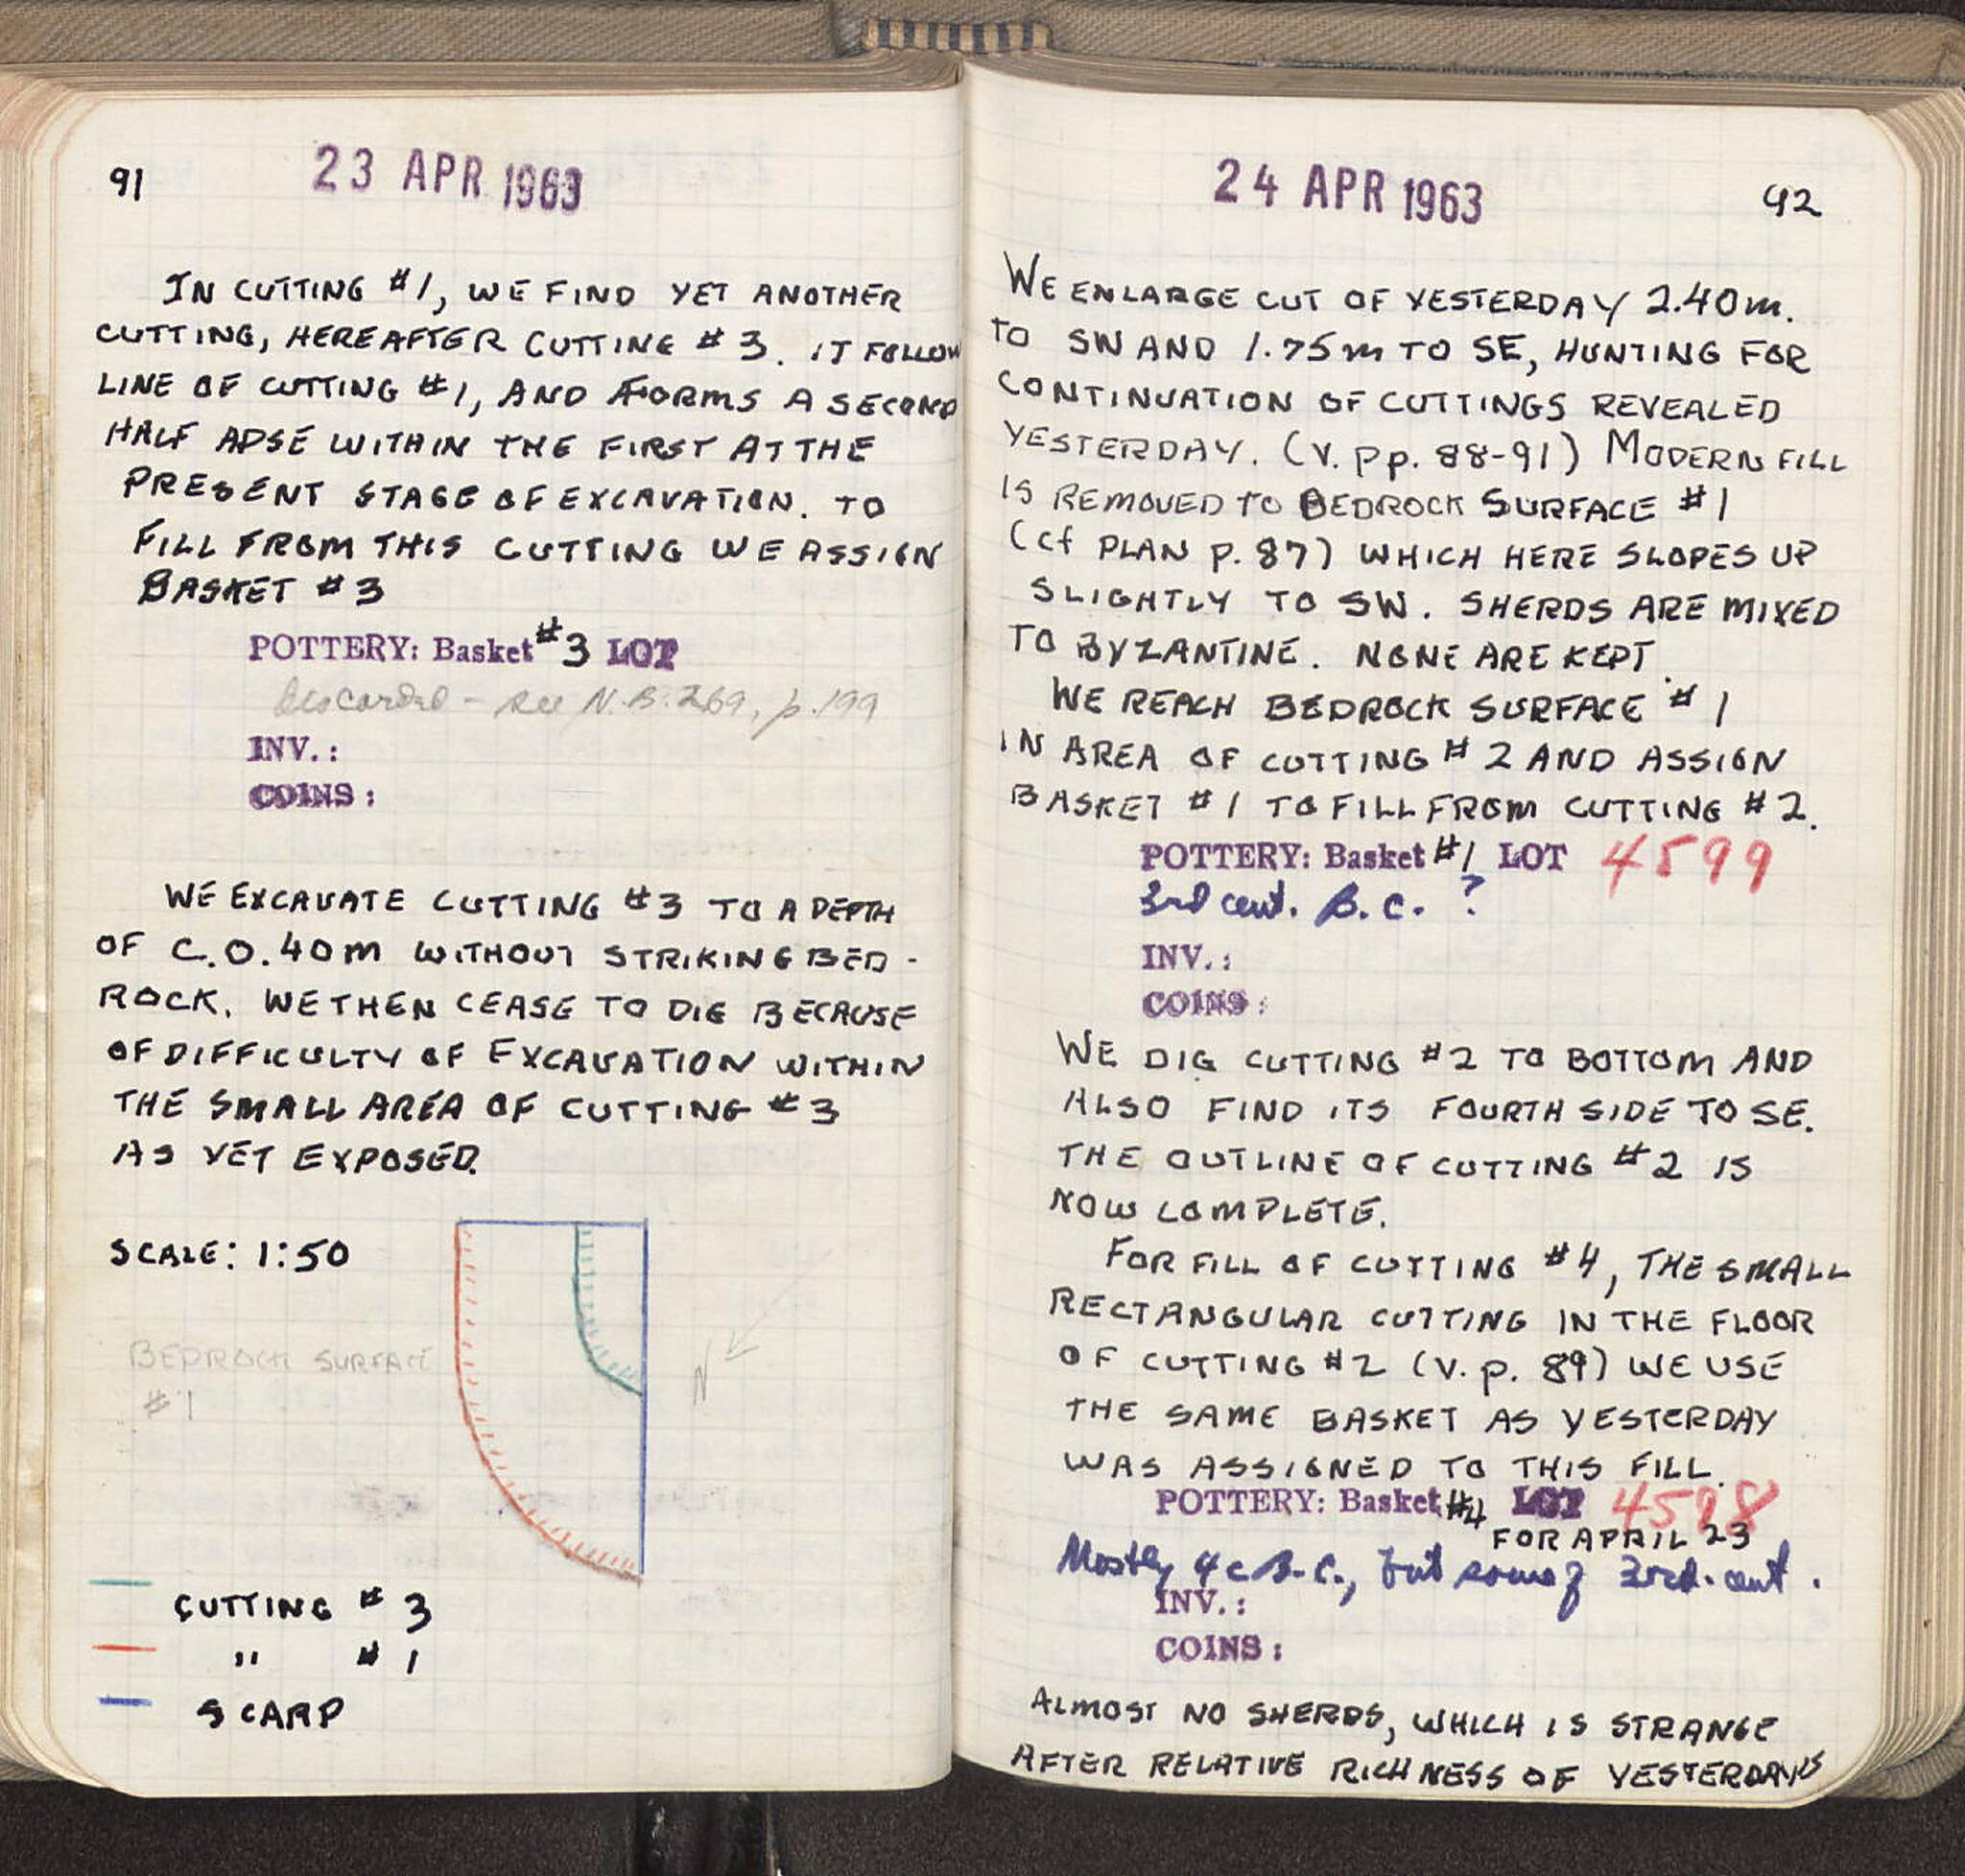 91
23 APR 1963
IN CUTTING #1, WE FIND YET ANOTHER
CUTTING, HEREAFTER CUTTING #3. IT FOLLOW
LINE OF CUTTING #1, AND FORMS A SECOND
HALF APSE WITHIN THE FIRST AT THE
PRESENT STAGE OF EXCAVATION. TO
FILL FROM THIS CUTTING WE ASSIGN
BASKET #3
POTTERY: Basket #3 LOT
discarded - see N.B. 269, p. 199
INV.:
COINS:
WE EXCAVATE CUTTING #3 TO A DEPTH
OF C.0.40m WITHOUT STRIKING BED-
ROCK. WE THEN CEASE TO DIG BECAUSE
OF DIFFICULTY OF EXCAVATION WITHIN
THE SMALL AREA OF CUTTING #3
AS YET EXPOSED.
SCALE: 1:50
BEDROCK SURFACE
#1
N
CUTTING #3
" #1
SCARP
24 APR 1963
92
WE ENLARGE CUT OF YESTERDAY 2.40m.
TO SW AND 1.75m TO SE, HUNTING FOR
CONTINUATION OF CUTTINGS REVEALED
YESTERDAY. (V. pp. 88-91) MODERN FILL
IS REMOVED TO BEDROCK SURFACE #1
(cf PLAN p. 87) WHICH HERE SLOPES UP
SLIGHTLY TO SW. SHERDS ARE MIXED
TO BYZANTINE. NONE ARE KEPT.
WE REACH BEDROCK SURFACE #1
IN AREA OF CUTTING #2 AND ASSIGN
BASKET #1 TO FILL FROM CUTTING #2.
POTTERY: Basket #1 LOT 4599
3rd cent. B.C. ?
INV.:
COINS:
WE DIG CUTTING #2 TO BOTTOM AND
ALSO FIND ITS FOURTH SIDE TO SE.
THE OUTLINE OF CUTTING #2 IS
NOW COMPLETE.
FOR FILL OF CUTTING #4, THE SMALL
RECTANGULAR CUTTING IN THE FLOOR
OF CUTTING #2 (V. p. 89) WE USE
THE SAME BASKET AS YESTERDAY
WAS ASSIGNED TO THIS FILL.
POTTERY: Basket #4 LOT 4598
FOR APRIL 23
Mostly 4c B.C., but some of 3rd. cent.
INV.:
COINS:
ALMOST NO SHERDS, WHICH IS STRANGE
AFTER RELATIVE RICHNESS OF YESTERDAY'S